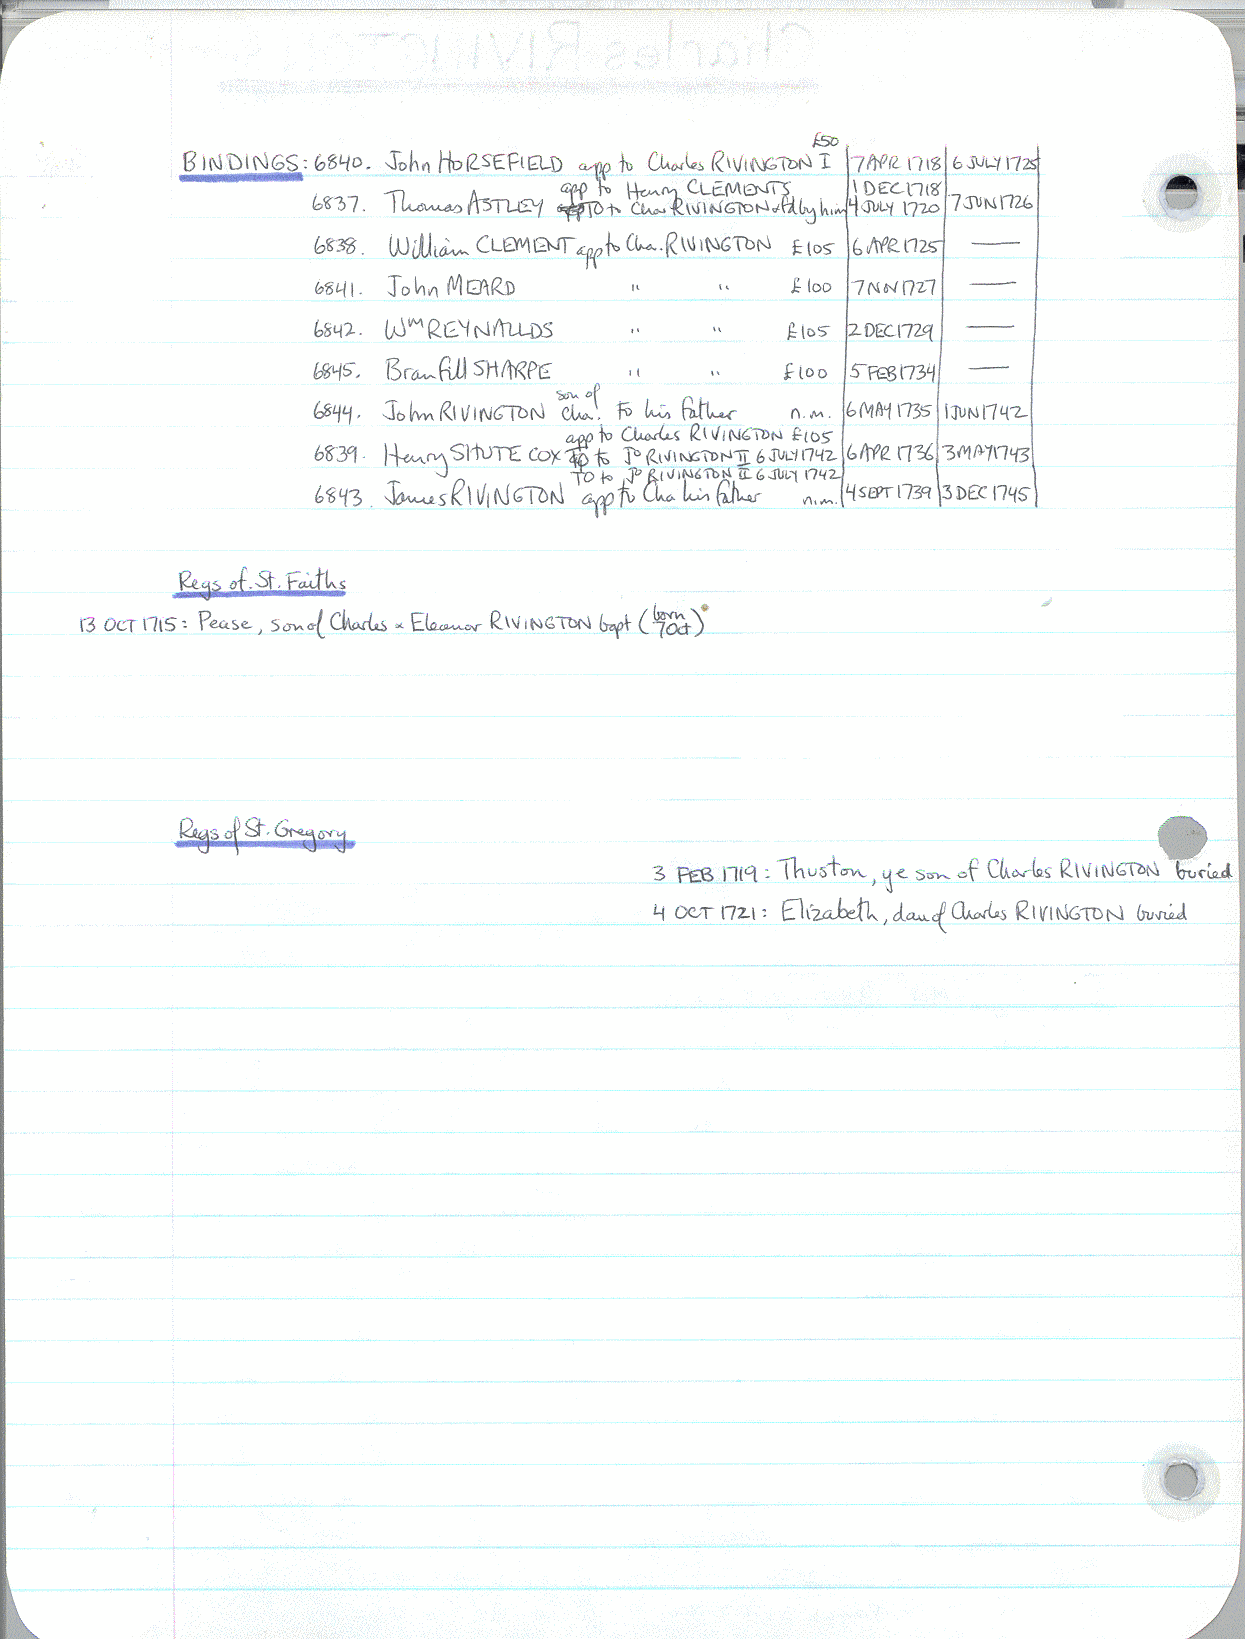 £50
BINDINGS: 6840. John HORSEFIELD app to Charles RIVINGTON I 7 APR 1718 6 JULY 1725
app to Henry CLEMENTS 1 DEC 1718
6837. Thomas ASTLEY TO to Cha RIVINGTON & fd by him 4 JULY 1720 7 JUN 1726
6838. William CLEMENT app to Cha. RIVINGTON £105 6 APR 1725 —
6841. John MEARD " " £100 7 NOV 1727 —
6842. Wm REYNALLDS " " £105 2 DEC 1729 —
6845. Branfill SHARPE " " £100 5 FEB 1734 —
son of
6844. John RIVINGTON Cha. to his father n.m. 6 MAY 1735 1 JUN 1742
app to Charles RIVINGTON £105
6839. Henry SHUTE COX TO to Jo RIVINGTON II 6 JULY 1742 6 APR 1736 3 MAY 1743
TO to Jo RIVINGTON II 6 JULY 1742
6843. James RIVINGTON app to Cha his father n.m. 4 SEPT 1739 3 DEC 1745
Regs of St. Faiths
13 OCT 1715: Pease, son of Charles & Eleanor RIVINGTON bapt (born 7 Oct)
Regs of St. Gregory
3 FEB 1719: Thuston, ye son of Charles RIVINGTON buried
4 OCT 1721: Elizabeth, dau of Charles RIVINGTON buried